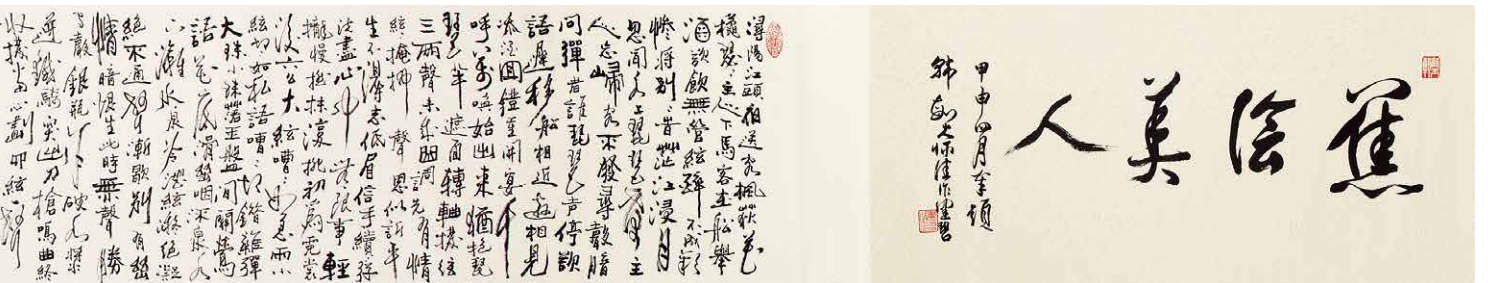 蕉陰美人
甲申四月奉頌
大师佳作
潯陽江頭夜送客楓荻花
秋瑟瑟主人下馬客在船舉
酒欲飲無管絃醉不成歡
慘將別別時茫茫江浸月
忽聞水上琵琶聲主
人忘歸客不發尋聲暗
問彈者誰琵琶声停欲
語遲移船相近邀相見
添酒回燈重開宴千
呼萬喚始出來猶抱琵
琶半遮面轉軸撥絃
三兩聲未成曲調先有情
絃絃掩抑聲聲思似訴平
生不得志低眉信手續續彈
說盡心中無限事輕
攏慢撚抹復挑初爲霓裳
後六么大絃嘈嘈如急雨小
絃切切如私語嘈嘈切切錯雜彈
大珠小珠落玉盤間關鶯
語花底滑幽咽泉
水泉冷澀絃凝絕凝
絕不通聲漸歇別有幽
情暗恨生此時無聲勝
有聲銀瓶乍破水漿
迸鐵騎突出刀槍鳴曲終
收撥當心劃四絃一聲